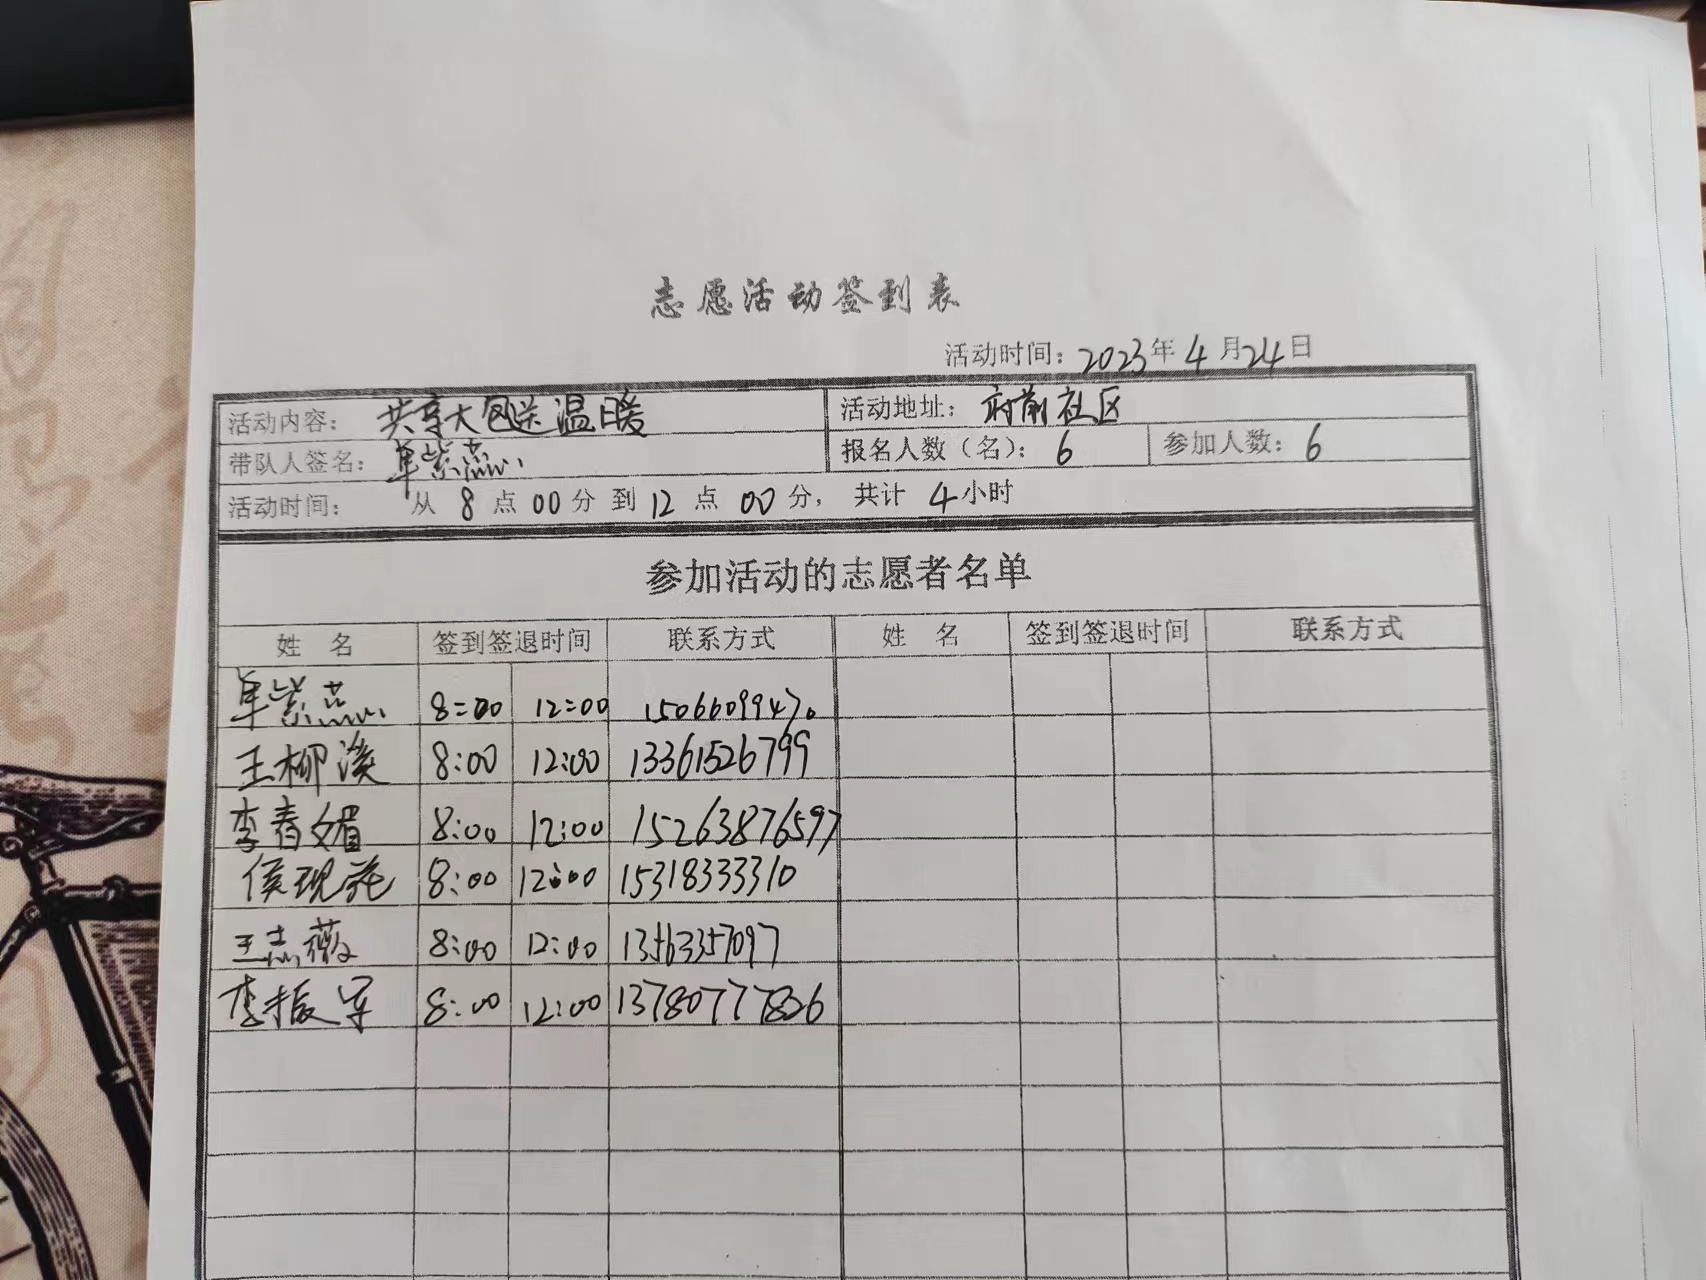 志愿活动签到表
活动时间：2023年4月24日
活动内容：共享大包送温暖 活动地址：府前社区
带队人签名：单紫燕 报名人数（名）：6 参加人数：6
活动时间： 从 8 点 00 分 到 12 点 00 分， 共计 4 小时
参加活动的志愿者名单
姓 名 签到签退时间 联系方式 姓 名 签到签退时间 联系方式
单紫燕 8:00 12:00 15066099470
王柳溪 8:00 12:00 13361526799
李春媚 8:00 12:00 15263876597
侯现 8:00 12:00 15318333310
王志薇 8:00 12:00 13563357097
李振军 8:00 12:00 13780777826